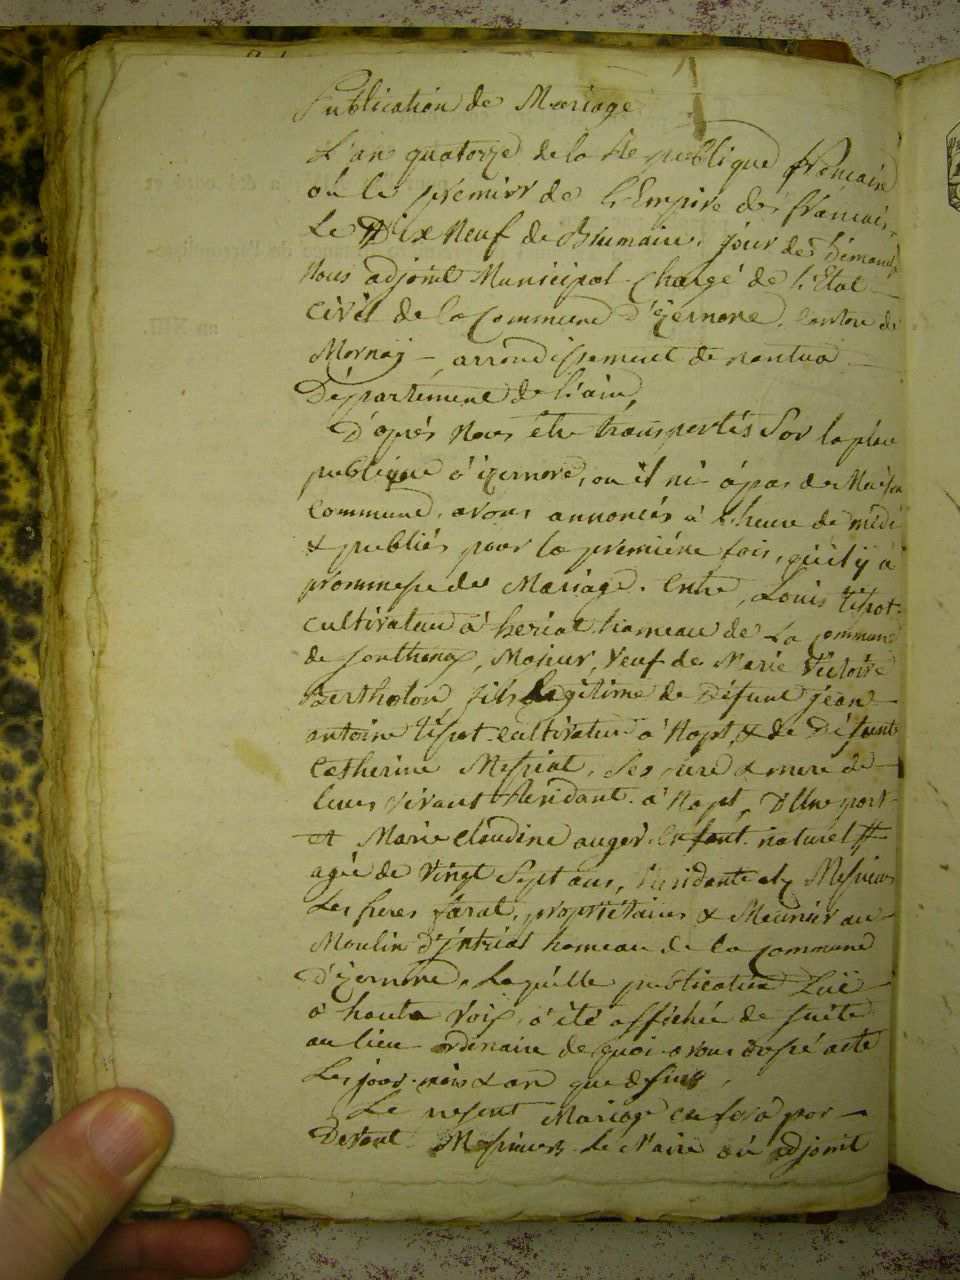 Publication de Mariage
L'an quatorze de la Republique francaise
ou le premier de l'Empire des francais,
Le Dix Neuf de Brumaire, jour de Dimanche
Nous adjoint Municipal Chargé de l'Etat
civil de la Commune d'izernore, Canton de
Mornay arrondissement de nantua
Département de l'ain,
D'après Nous etre transportés Sur la place
publique a izernore, ou il ni a pas de Maison
Commune, avons annoncés a l'heure de midi
& publiés pour la premiére fois, qu'il y à
prommesse de Mariage. Entre, Louis tissot
cultivateur à heriat hameau de La Commune
de Sonthonax, Majeur, Veuf de Marie Victoire
Bertholon, fils Légitime de Défunt jean
antoine tissot cultivateur à Napt, & de Défunte
Catherine Messiat, ses pere & mere de
leurs vivant Résidant à Napt, D'Une part
et Marie Claudine auger Enfant naturel
agée de Vingt Sept ans, Résidante Messieurs
Les freres farat, propriétaires & Meunier au
Moulin D'intriat hameau de la Commune
D'izernore, Laquelle publication Luë
à haute Voix, a été affichée de suite
au lieu ordinaire de quoi avons dressé acte
Les jour mois & an que dessus,
Le present Mariage en sera par
Devant Messieurs Le Maire ou adjoint